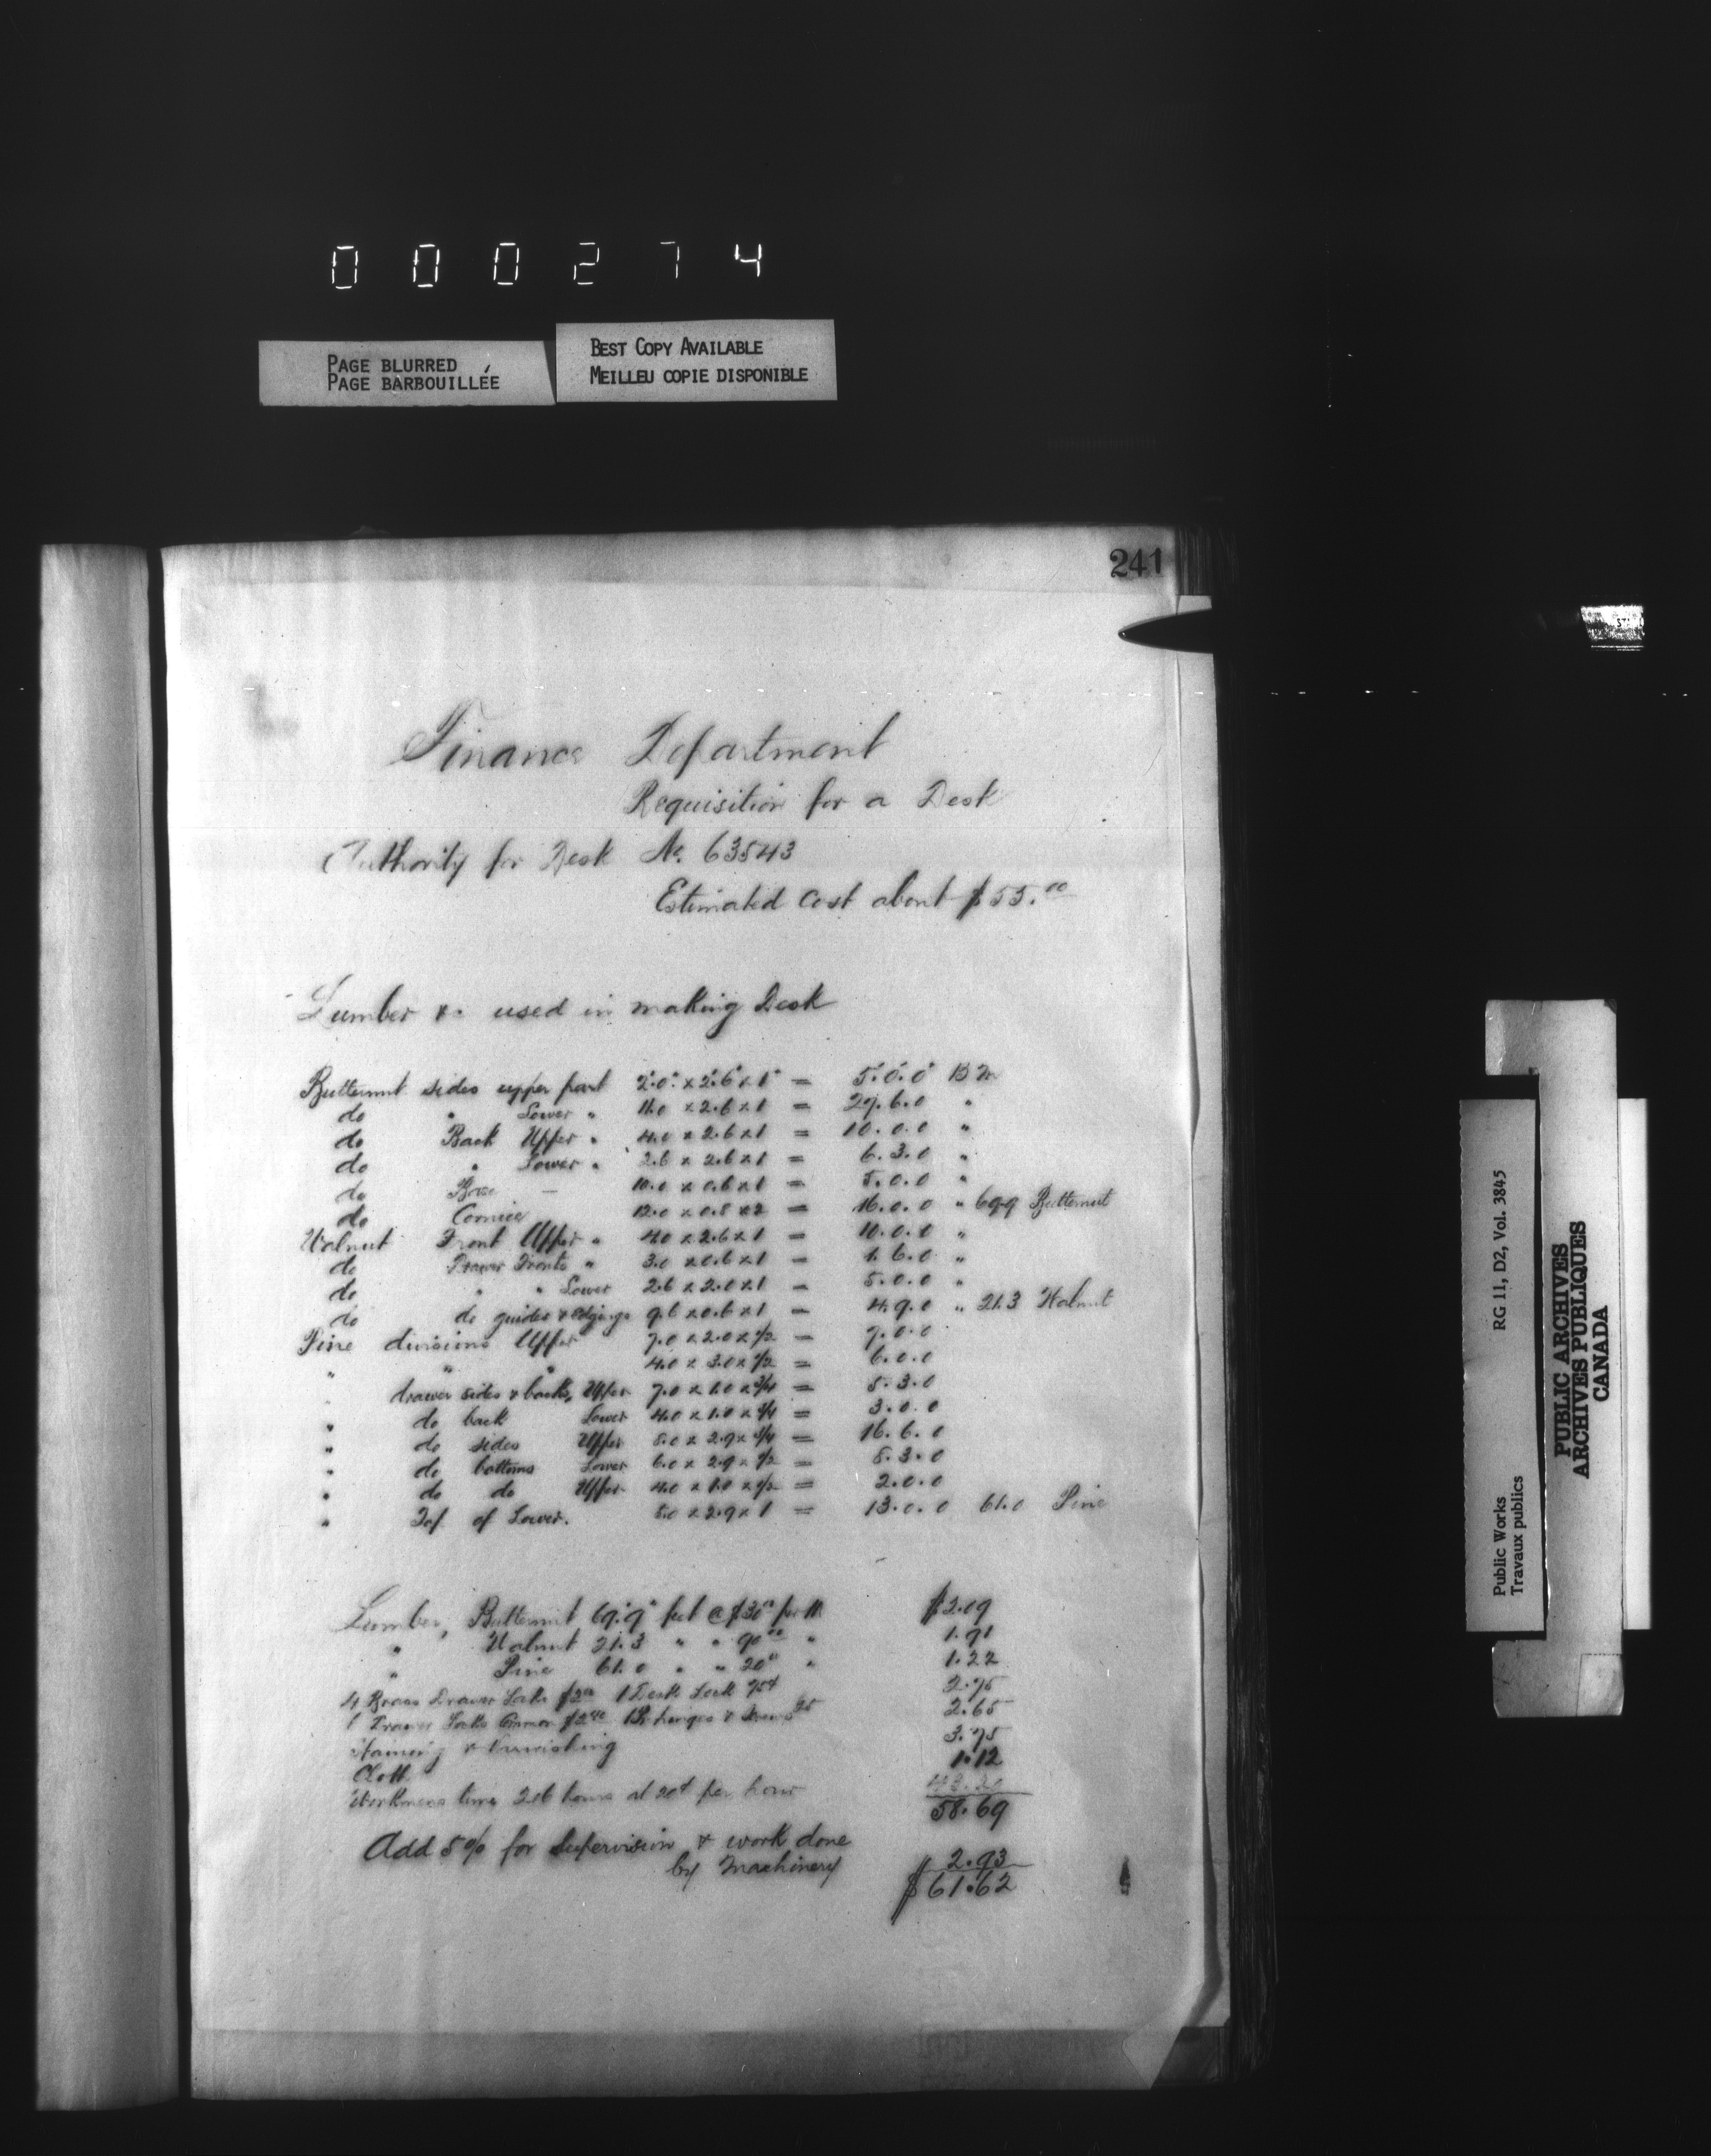 000274
PAGE BLURRED
PAGE BARBOUILLÉE
BEST COPY AVAILABLE
MEILLEU COPIE DISPONIBLE
241
Finance Department
Requisition for a Desk
Authority for Desk No. 63543
Estimated cost about $55.00
Lumber &c used in making Desk
Butternut sides upper part 2'.0" x 2'.6" x 1" = 5'.0'.0" B M
do " Lower " 11.0 x 2.6 x 1 = 27.6.0 "
do Back Upper " 4.0 x 2.6 x 1 = 10.0.0 "
do " Lower " 2.6 x 2.6 x 1 = 6.3.0 "
do Base — 10.0 x 0.6 x 1 = 5.0.0 "
do Cornice 12.0 x 0.8 x 2 = 16.0.0 " 69.9 Butternut
Walnut Front Upper " 4.0 x 2.6 x 1 = 10.0.0 "
do Drawer Fronts " 3.0 x 0.6 x 1 = 1.6.0 "
do " " Lower 2.6 x 2.0 x 1 = 5.0.0 "
do do guides & edgings 9.6 x 0.6 x 1 = 4.9.0 " 21.3 Walnut
Pine divisions Upper 7.0 x 2.0 x 1/2 = 7.0.0
" " " 4.0 x 3.0 x 1/2 = 6.0.0
" drawer sides & backs, Upper 7.0 x 1.0 x 3/4 = 5.3.0
" do back Lower 4.0 x 1.0 x 3/4 = 3.0.0
" do sides Upper 8.0 x 2.9 x 3/4 = 16.6.0
" do bottoms Lower 6.0 x 2.9 x 1/2 = 8.3.0
" do do Upper 4.0 x 1.0 x 1/2 = 2.0.0
" Top of Lower. 5.0 x 2.9 x 1 = 13.0.0 61.0 Pine
Lumber, Butternut 69'.9" feet @ $30.00 per M $2.09
" Walnut 21.3 " " 90.00 " 1.91
" Pine 61.0 " " 20.00 " 1.22
4 Brass Drawer Locks $2.00 1 Desk Lock 75¢ 2.75
Drawer Locks Common $2.40 1 Pr hinges & Screws 25 2.65
Staining & Varnishing 3.75
Cloth 1.12
Workmens time 216 hours at 20¢ per hour 43.20
58.69
Add 5% for Supervision & work done
by Machinery 2.93
$61.62
RG 11, D2, Vol. 3845
Public Works
Travaux publics
PUBLIC ARCHIVES
ARCHIVES PUBLIQUES
CANADA